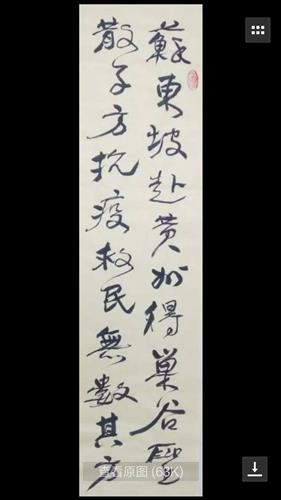 蘇東坡赴黄州得巢谷聖
散子方抗疫救民無數其方
查看原图 (63K)